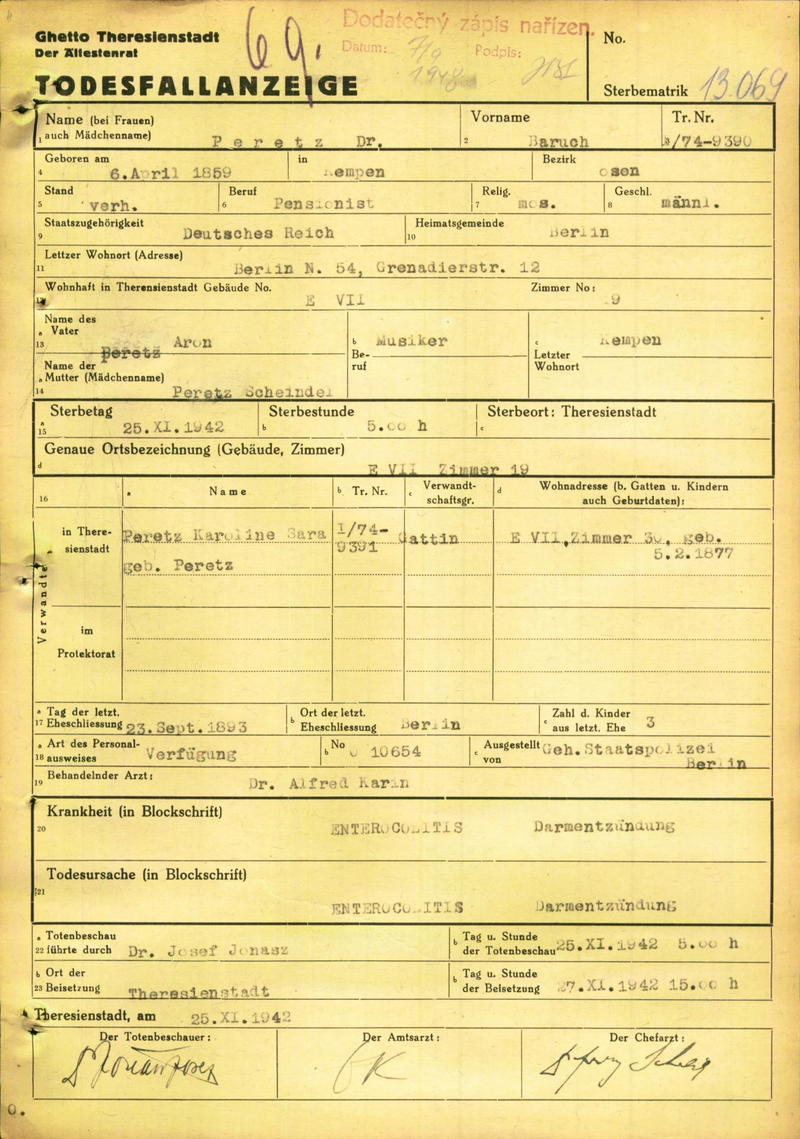 Ghetto Theresienstadt
Der Ältestenrat
TODESFALLANZEIGE
69.
Dodatečný zápis nařízen.
Datum:
Podpis:
1948
No.
Sterbematrik 13.069
Name (bei Frauen)
1 auch Mädchenname) Peretz Dr.
Vorname
2 Baruch
Tr. Nr.
3 I/74-9390
Geboren am
4 6.April 1859
in
Kempen
Bezirk
Posen
Stand
5 verh.
Beruf
6 Pensionist
Relig.
7 mos.
Geschl.
8 männl.
Staatszugehörigkeit
9 Deutsches Reich
Heimatsgemeinde
10 Berlin
Lettzer Wohnort (Adresse)
11 Berlin N. 54, Grenadierstr. 12
Wohnhaft in Therensienstadt Gebäude No.
E VII
Zimmer No:
9
Name des
a Vater
13 Aron
Peretz
b Musiker
Be-
ruf
c Kempen
Letzter
Wohnort
Name der
a Mutter (Mädchenname)
14 Peretz Scheindel
Sterbetag
a 15 25.XI.1942
Sterbestunde
b 5.00 h
Sterbeort: Theresienstadt
c
Genaue Ortsbezeichnung (Gebäude, Zimmer)
d E VII Zimmer 19
16
a Name
b Tr. Nr.
c Verwandt-
schaftsgr.
d Wohnadresse (b. Gatten u. Kindern
auch Geburtdaten):
Verwandte
in There-
sienstadt
Peretz Karoline Sara
geb. Peretz
I/74-
9391
Gattin
E VII,Zimmer 30, geb.
5.2.1877
im
Protektorat
a Tag der letzt.
17 Eheschliessung 23.Sept.1893
b Ort der letzt.
Eheschliessung Berlin
c Zahl d. Kinder
aus letzt. Ehe 3
a Art des Personal-
18 ausweises Verfügung
b No 10654
c Ausgestellt
von Geh.Staatspolizei
Berlin
Behandelnder Arzt:
19 Dr. Alfred
Krankheit (in Blockschrift)
20 ENTEROCOLITIS Darmentzündung
Todesursache (in Blockschrift)
21 ENTEROCOLITIS Darmentzündung
a Totenbeschau
22 führte durch Dr. Josef Jonasz
b Tag u. Stunde
der Totenbeschau 25.XI.1942 5.00 h
b Ort der
23 Beisetzung Theresienstadt
b Tag u. Stunde
der Beisetzung 27.XI.1942 15.00 h
Theresienstadt, am 25.XI.1942
Der Totenbeschauer:
Der Amtsarzt:
Der Chefarzt: